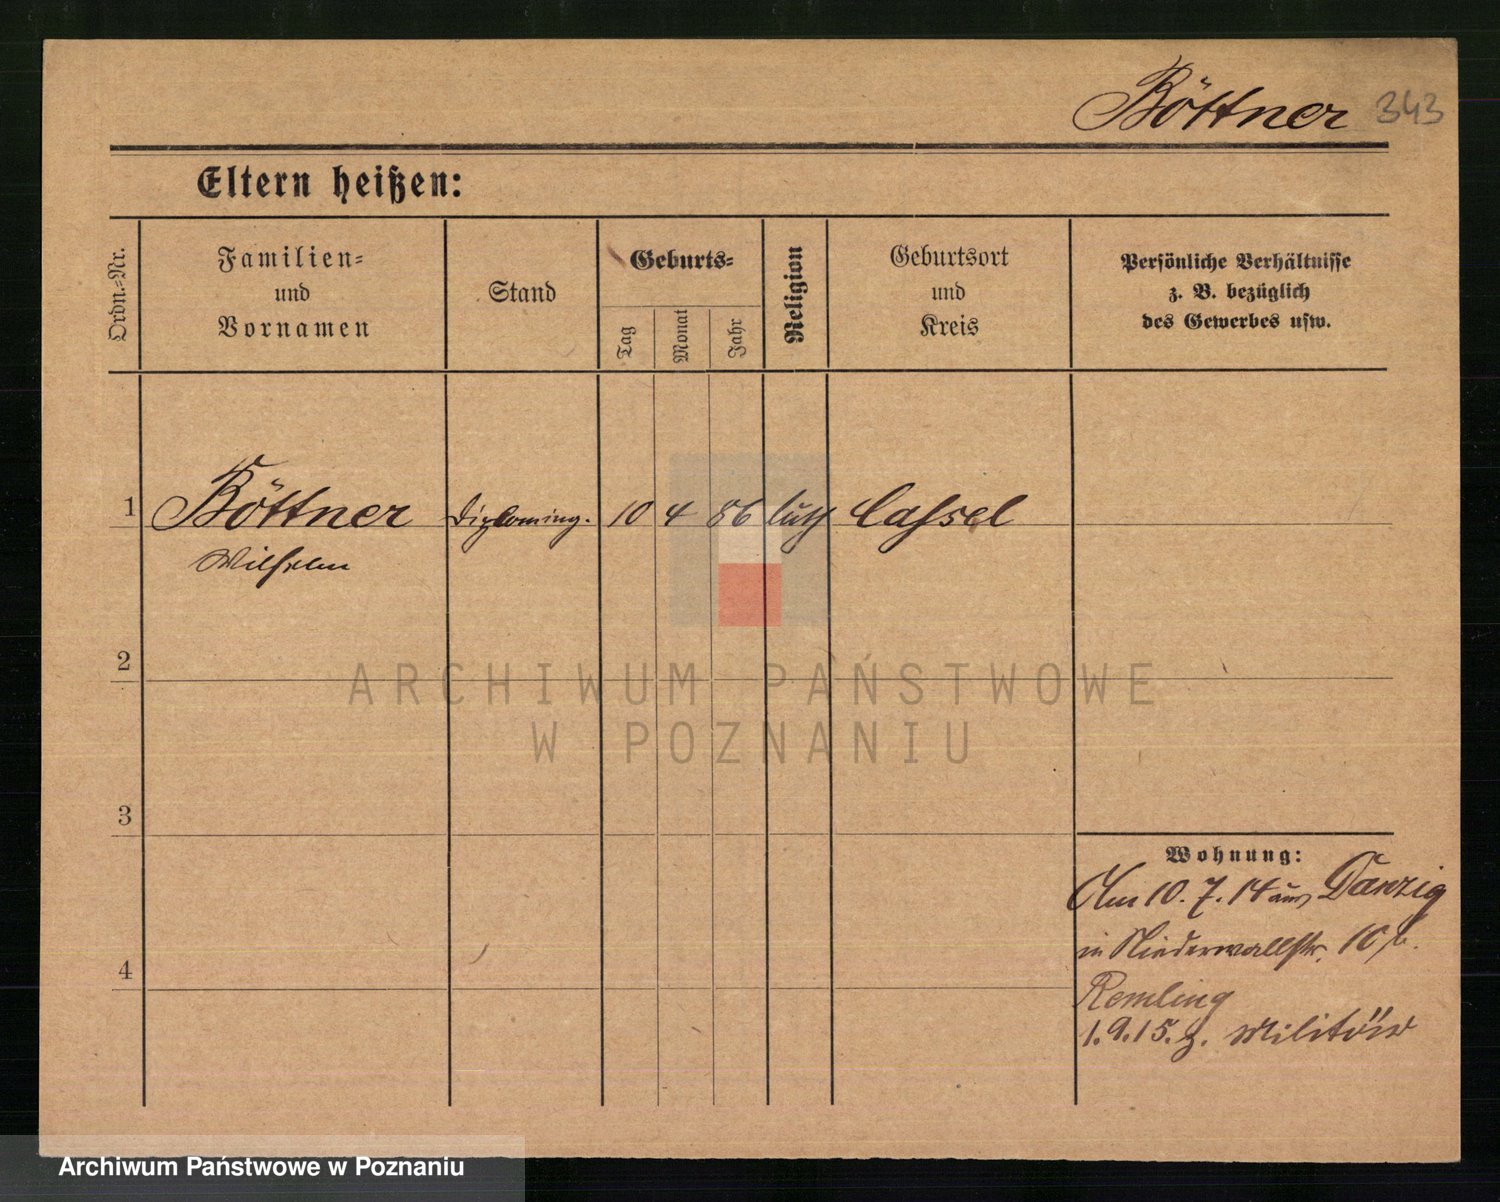 Böttner 343
Eltern heißen:
Ordn.-Nr.
Familien-
und
Vornamen
Stand
Geburts-
Tag
Monat
Jahr
Religion
Geburtsort
und
Kreis
Persönliche Verhältnisse
z. B. bezüglich
des Gewerbes usw.
1 Böttner Diploming. 10 4 86 luth Cassel
Wilhelm
2
ARCHIWUM PAŃSTWOWE
W POZNANIU
3
Wohnung:
Am 10. 7. 14 aus Danzig
in Niederwallstr. 10 b.
4
Remling
1.9.15. z. Militär
Archiwum Państwowe w Poznaniu